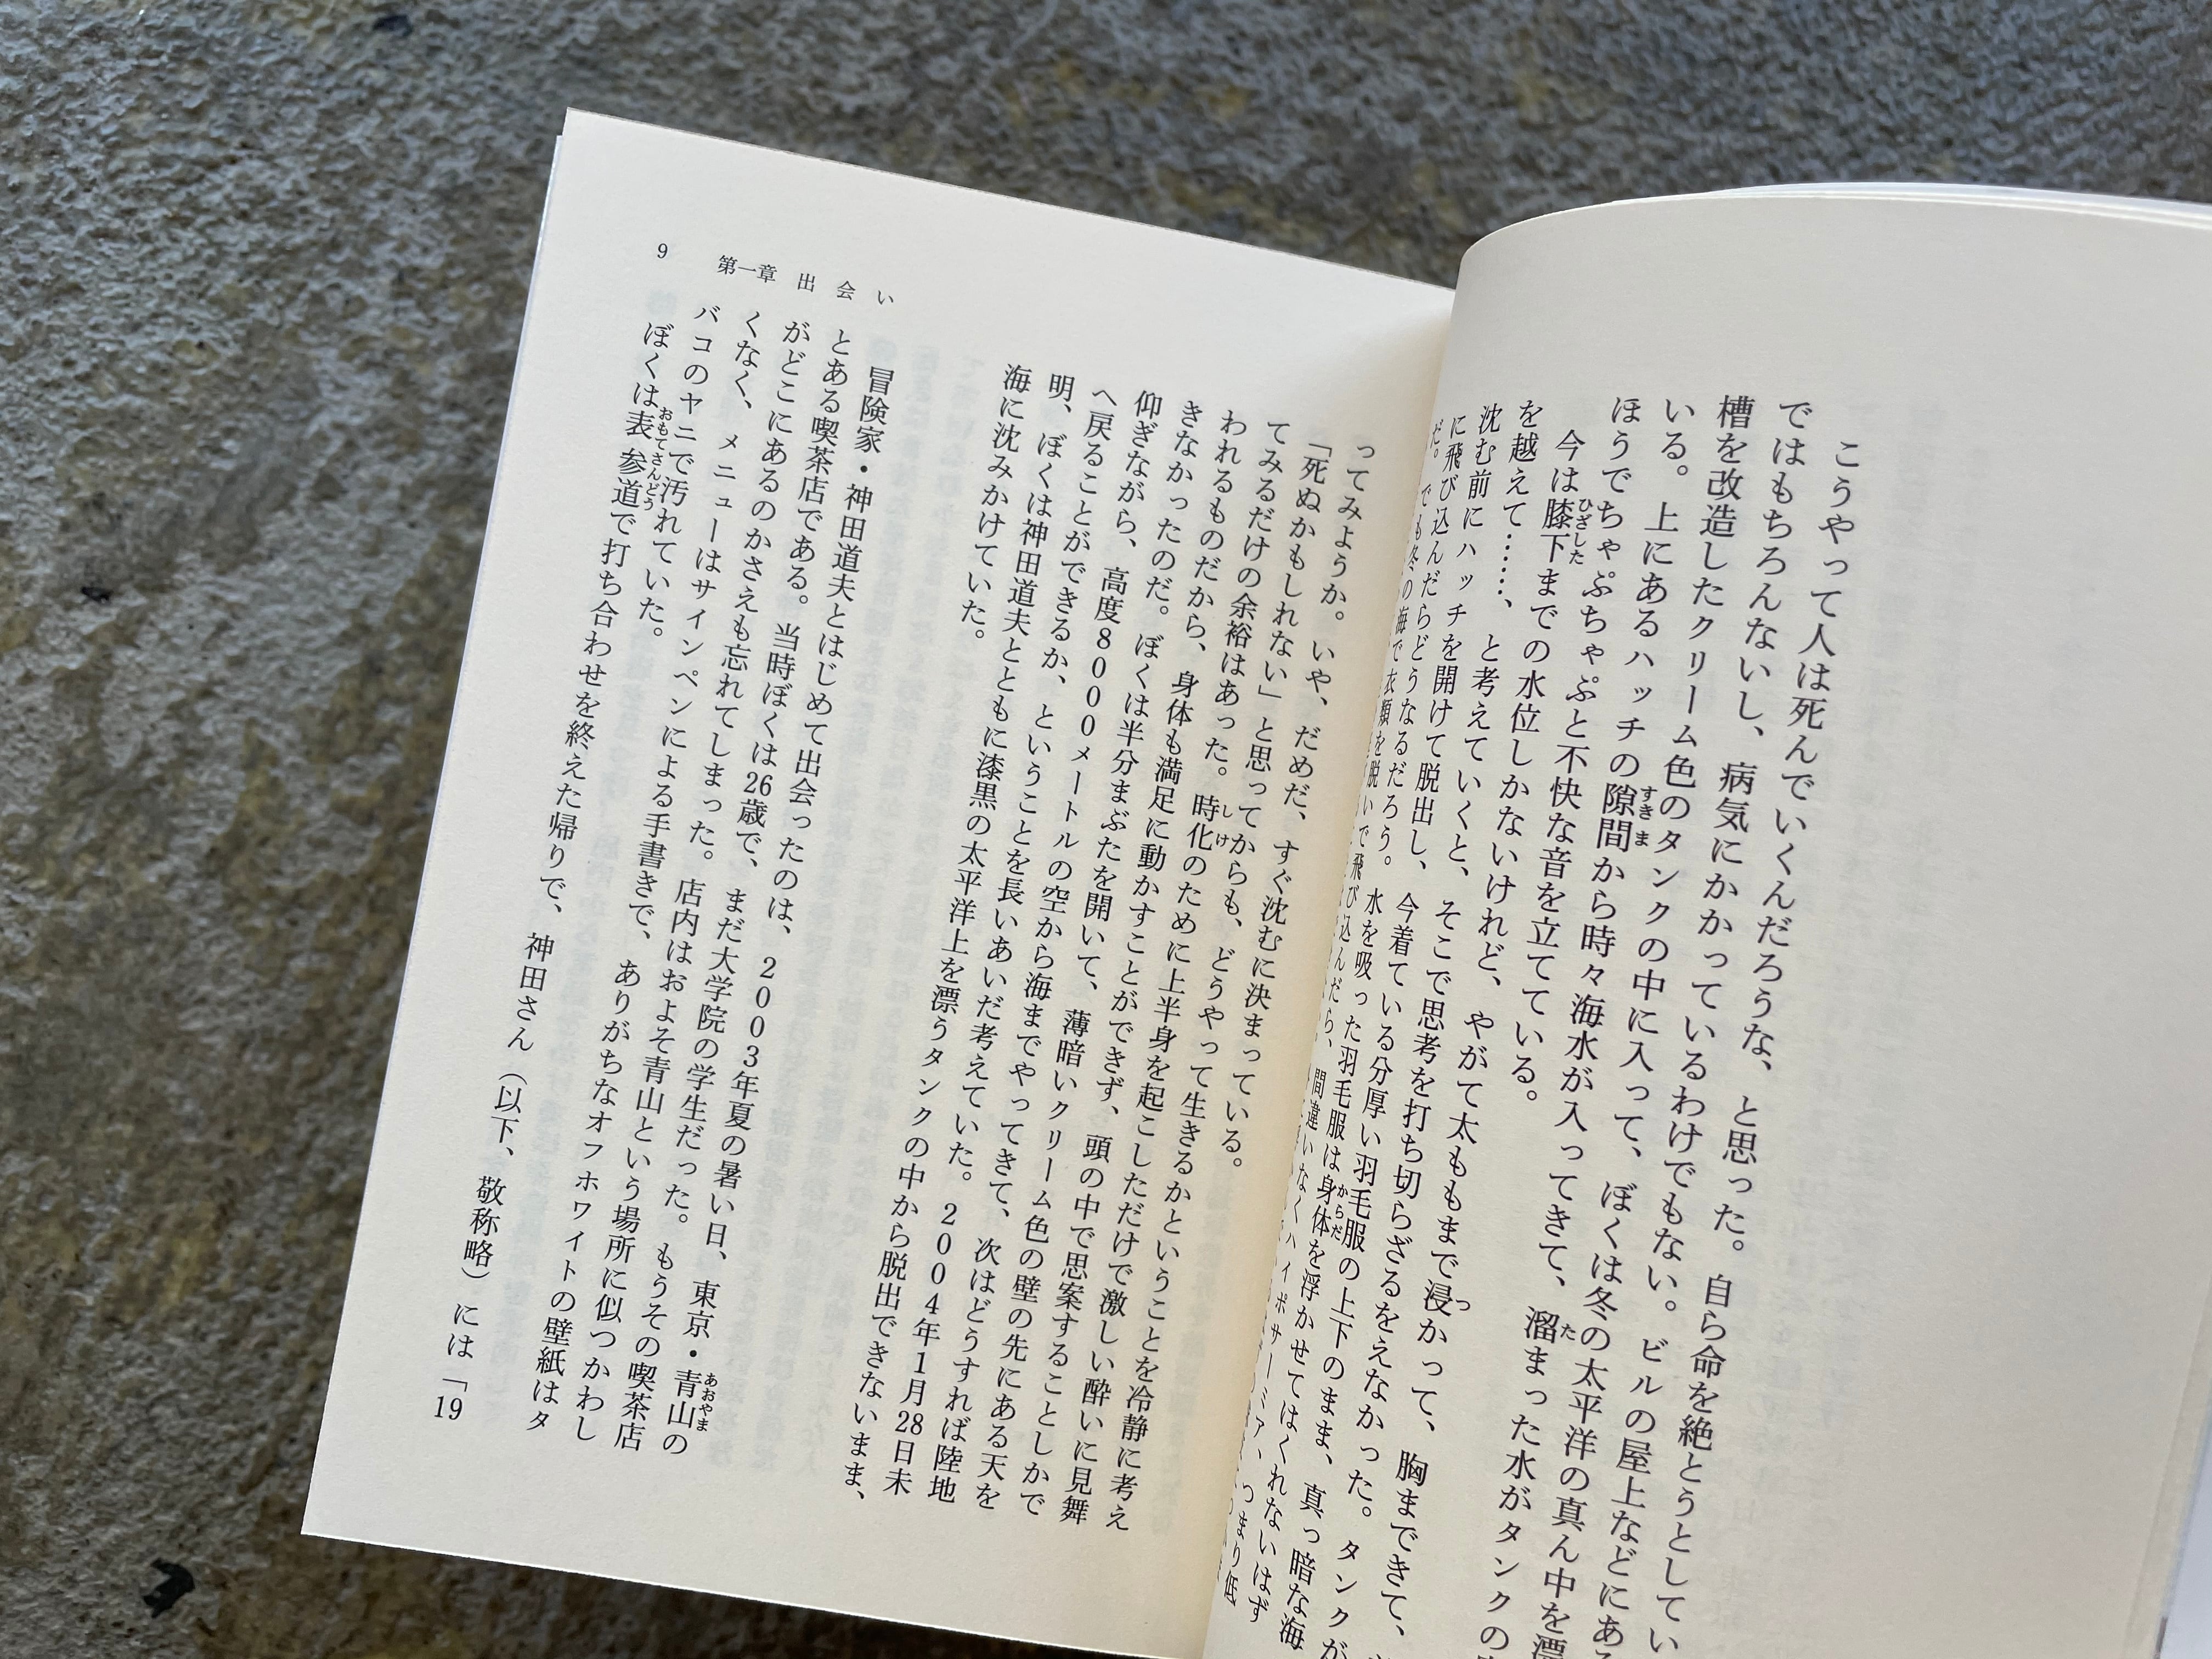 こうやって人は死んでいくんだろうな、と思った。自ら命を絶とうとしてい
ではもちろんないし、病気にかかっているわけでもない。ビルの屋上などにある
槽を改造したクリーム色のタンクの中に入って、ぼくは冬の太平洋の真ん中を漂
いる。上にあるハッチの隙間から時々海水が入ってきて、溜まった水がタンクの
ほうでちゃぷちゃぷと不快な音を立てている。
今は膝下までの水位しかないけれど、やがて太ももまで浸かって、胸まできて、
を越えて……、と考えていくと、そこで思考を打ち切らざるをえなかった。タンクが
沈む前にハッチを開けて脱出し、今着ている分厚い羽毛服の上下のまま、真っ暗な海
に飛び込んだらどうなるだろう。水を吸った羽毛服は身体を浮かせてはくれないはず
だ。でも冬の海で衣類を脱いで飛び込んだら、間違いなくハイポサーミア、つまり低
ってみようか。いや、だめだ、すぐ沈むに決まっている。
「死ぬかもしれない」と思ってからも、どうやって生きるかということを冷静に考え
てみるだけの余裕はあった。時化のために上半身を起こしただけで激しい酔いに見舞
われるものだから、身体も満足に動かすことができず、頭の中で思案することしかで
きなかったのだ。ぼくは半分まぶたを開いて、薄暗いクリーム色の壁の先にある天を
仰ぎながら、高度8000メートルの空から海までやってきて、次はどうすれば陸地
へ戻ることができるか、ということを長いあいだ考えていた。2004年1月28日未
明、ぼくは神田道夫とともに漆黒の太平洋上を漂うタンクの中から脱出できないまま、
海に沈みかけていた。
冒険家・神田道夫とはじめて出会ったのは、2003年夏の暑い日、東京・青山の
とある喫茶店である。当時ぼくは26歳で、まだ大学院の学生だった。もうその喫茶店
がどこにあるのかさえも忘れてしまった。店内はおよそ青山という場所に似つかわし
くなく、メニューはサインペンによる手書きで、ありがちなオフホワイトの壁紙はタ
バコのヤニで汚れていた。
ぼくは表参道で打ち合わせを終えた帰りで、神田さん（以下、敬称略）には「19
9 第一章 出会い